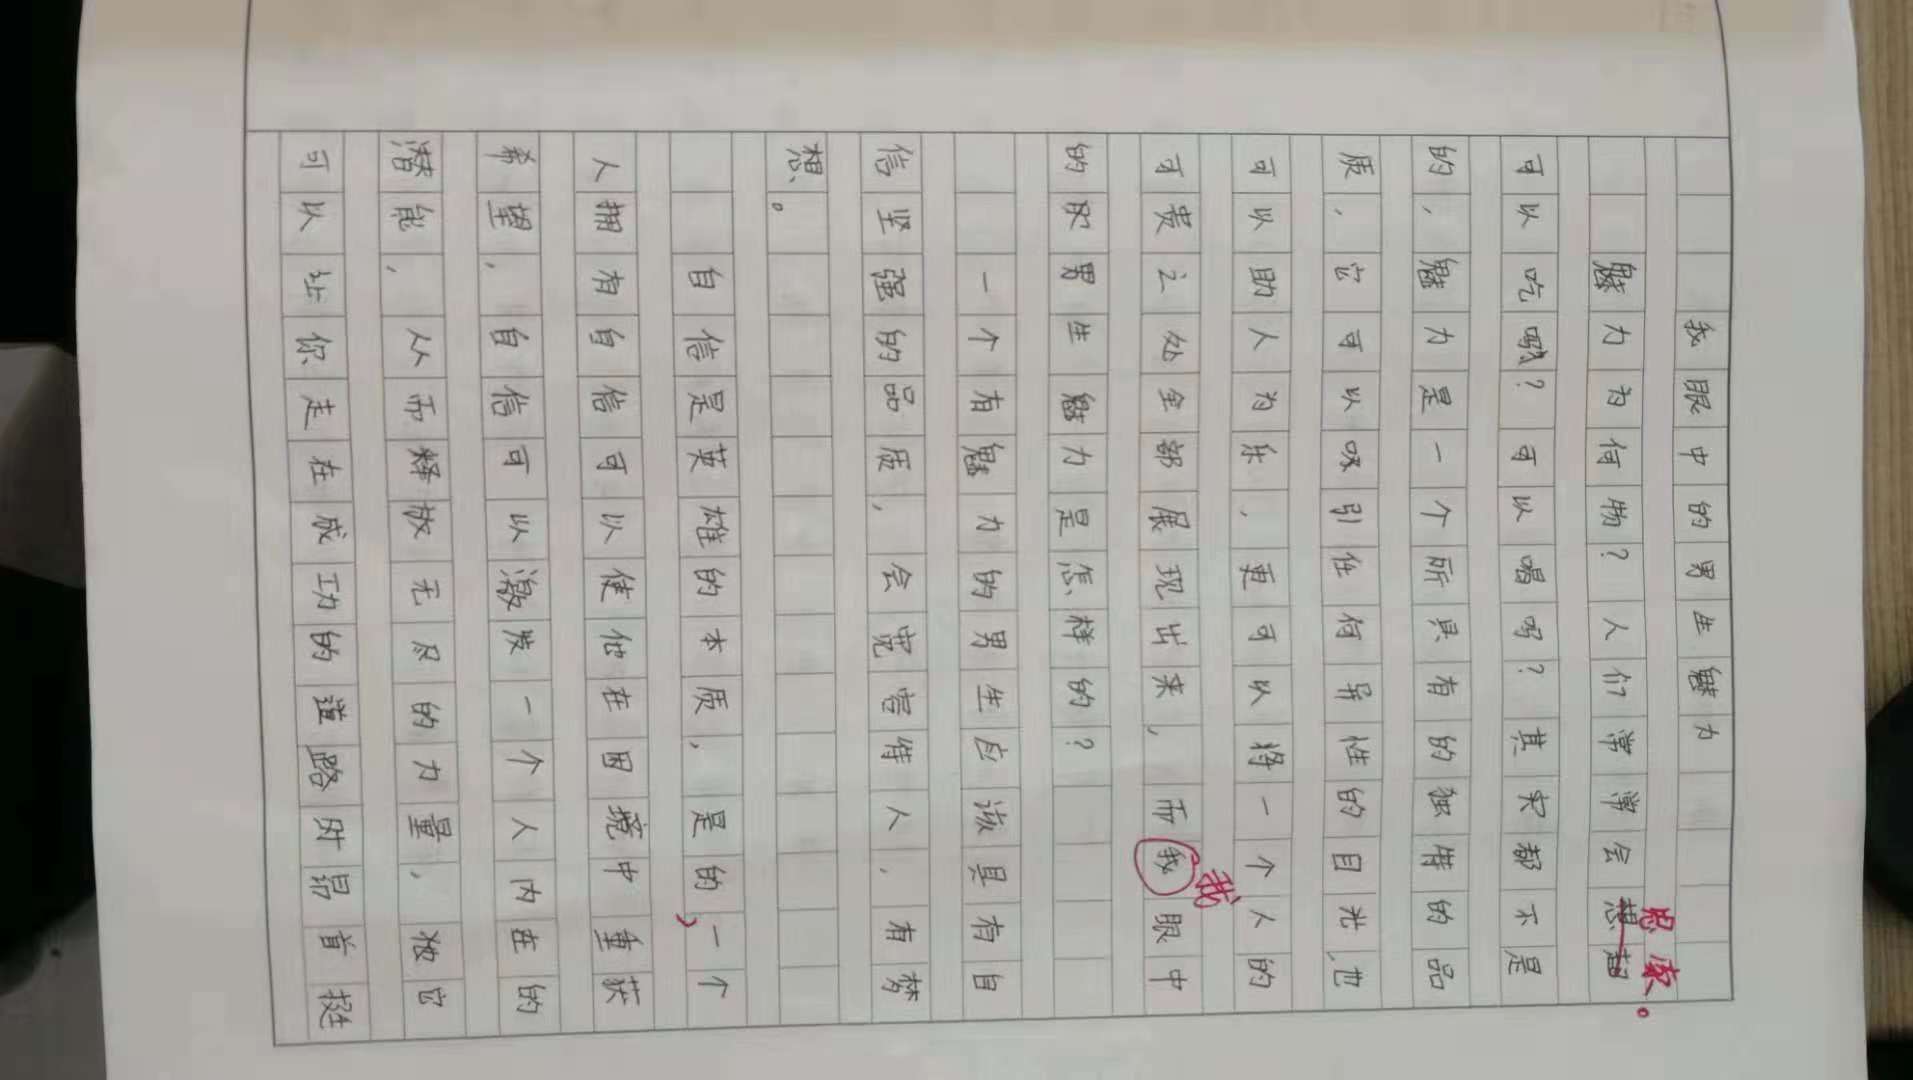 我眼中的男生魅力
魅力为何物?人们常常会想超
思索。
可以吃哦?可以喝吗?其实都不是
的,魅力是一个所具有的独特的品
质,它可以吸引任何异性的目光,也
可以助人为乐,更可以将一个人的
我
可贵之处全部展现出来,而我眼中
的男生魅力是怎样的?
一个有魅力的男生应该具有自
信坚强的品质,会宽容待人,有梦
想。
自信是英雄的本质,是的,一个
人拥有自信可以使他在困境中重获
希望,自信可以激发一个人内在的
潜能,从而释放无尽的力量,它
可以让你走在成功的道路时昂首挺